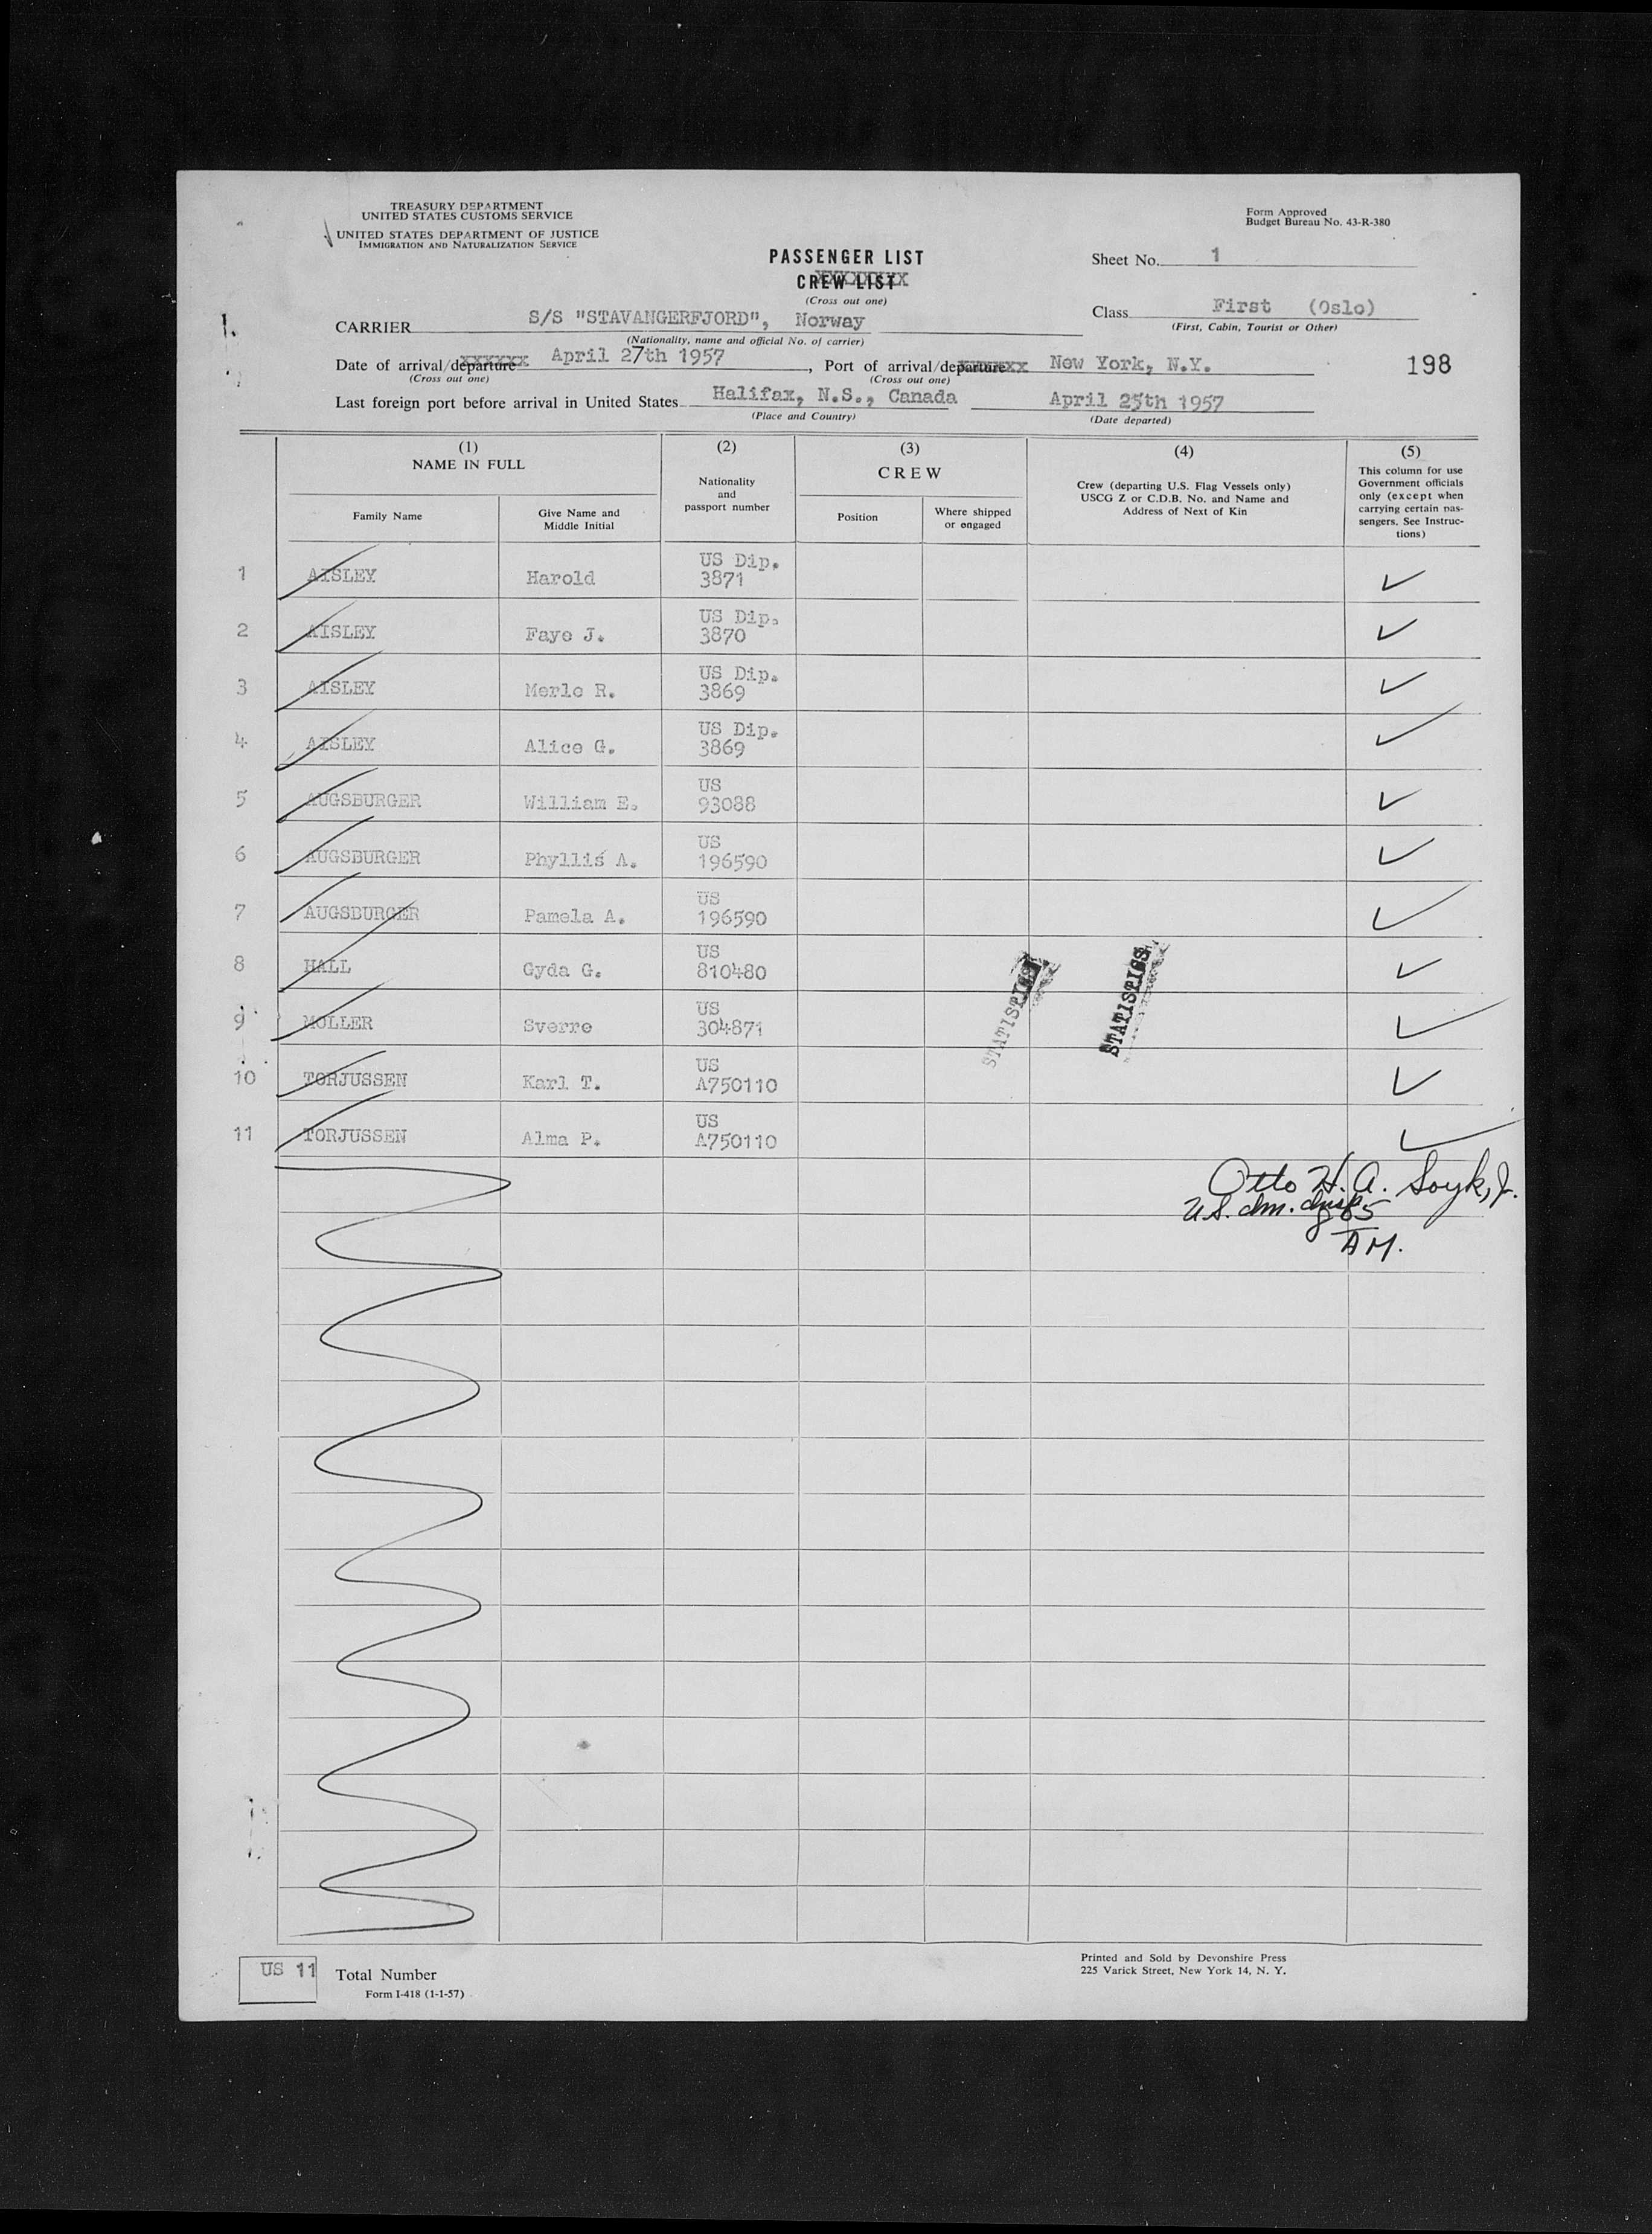 TREASURY DEPARTMENT
UNITED STATES CUSTOMS SERVICE
UNITED STATES DEPARTMENT OF JUSTICE
IMMIGRATION AND NATURALIZATION SERVICE
Form Approved
Budget Bureau No. 43-R-380
PASSENGER LIST
CREW LIST
(Cross out one)
Sheet No. 1
Class First (Oslo)
(First, Cabin, Tourist or Other)
CARRIER S/S "STAVANGERFJORD", Norway
(Nationality, name and official No. of carrier)
Date of arrival/departure April 27th 1957, Port of arrival/departure New York, N.Y. 198
(Cross out one) (Cross out one)
Last foreign port before arrival in United States Halifax, N.S., Canada April 25th 1957
(Place and Country) (Date departed)
(1) (2) (3) (4) (5)
NAME IN FULL
Family Name
Give Name and
Middle Initial
Nationality
and
passport number
CREW
Position
Where shipped
or engaged
Crew (departing U.S. Flag Vessels only)
USCG Z or C.D.B. No. and Name and
Address of Next of Kin
This column for use
Government officials
only (except when
carrying certain pas-
sengers, See Instruc-
tions)
1 AISLEY Harold US Dip. 3871
2 AISLEY Faye J. US Dip. 3870
3 AISLEY Merle R. US Dip. 3869
4 AISLEY Alice G. US Dip. 3869
5 AUGSBURGER William E. US 93088
6 AUGSBURGER Phyllis A. US 196590
7 AUGSBURGER Pamela A. US 196590
8 HALL Gyda G. US 810480
9 MOLLER Sverre US 304871
10 TORJUSSEN Karl T. US A750110
11 TORJUSSEN Alma P. US A750110
STATISTICS
STATISTICS
Otto H. A. Soyk, Jr.
U.S.
AM.
US 11 Total Number
Form I-418 (1-1-57)
Printed and Sold by Devonshire Press
225 Varick Street, New York 14, N. Y.